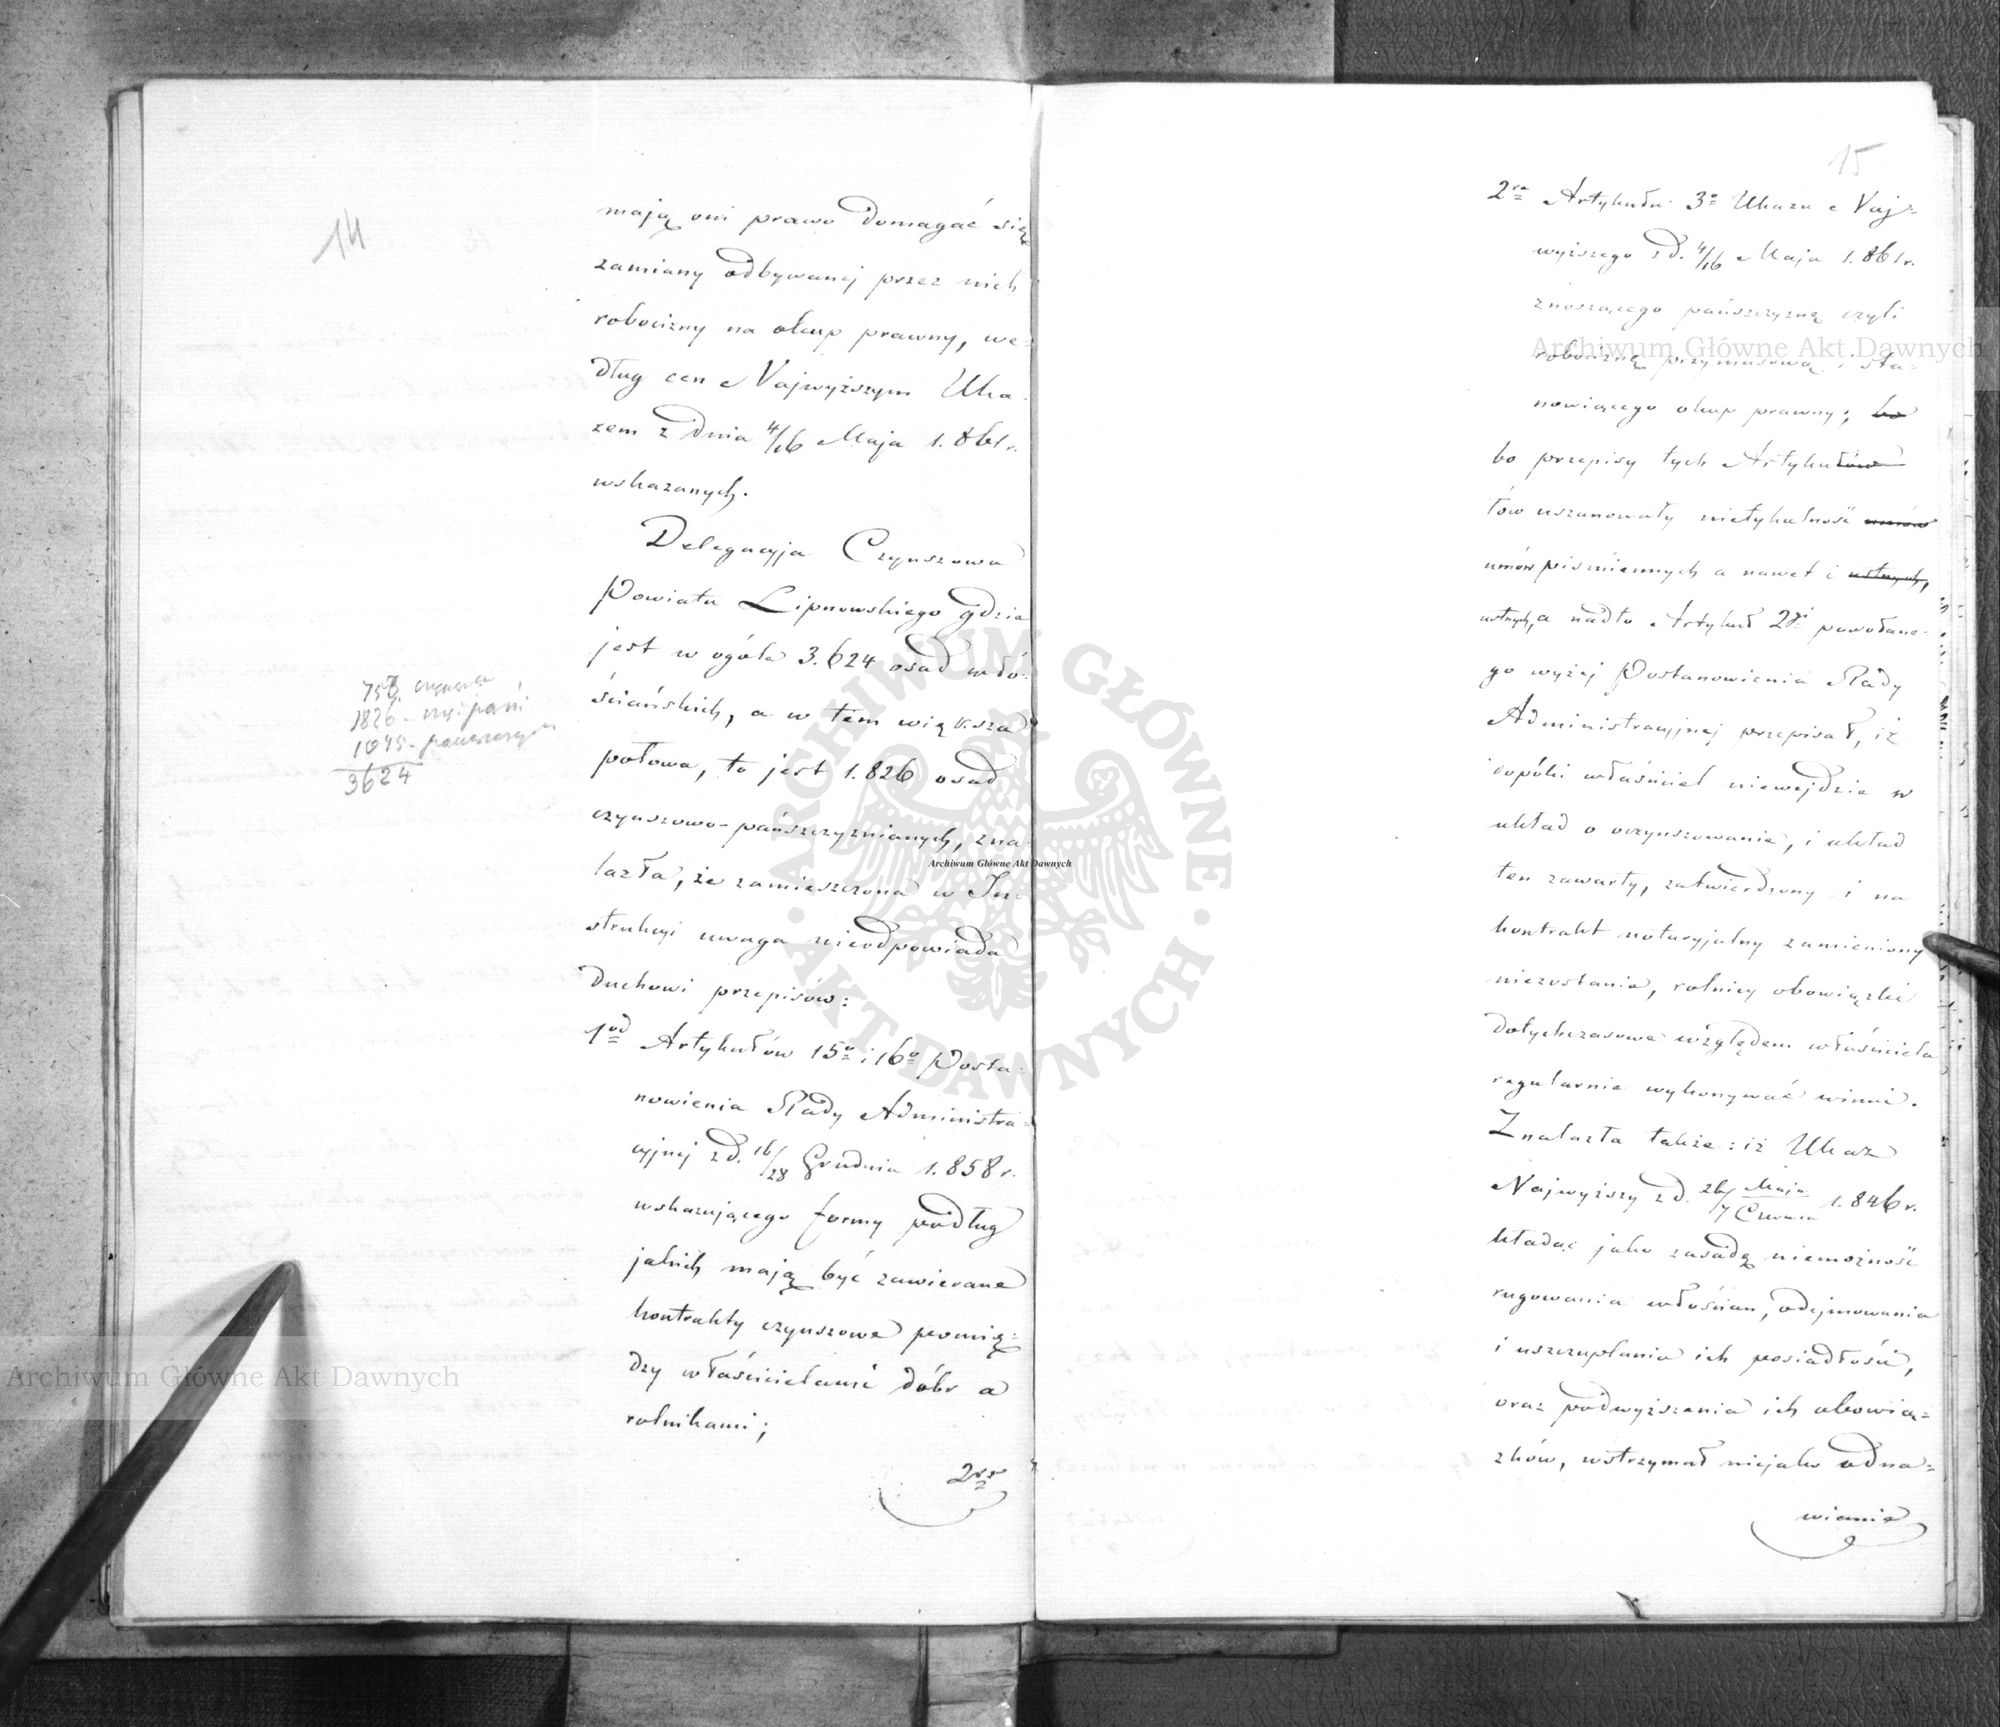 14
mają oni prawo domagać się
zamiany odbywanej przez nich
robocizny na okup prawny, we-
dług cen Najwyższym Uka-
zem z dnia 4/16 Maja 1.861 r.
wskazanych.
Delegacyja Czynszowa
Powiatu Lipnowskiego gdzie
jest w ogóle 3.624 osad włó-
ściańskich, a w tem większa
połowa, to jest 1.826 osad
czynszowo-pańszczyznianych, zna-
lazła, że zamieszczona w In-
strukcyi uwaga nieodpowiada
duchowi przepisów:
1od Artykułów 15o i 16o Posta-
nowienia Rady Administra-
cyjnej z d. 16/28 Grudnia 1.858 r.
wskazującego formy podług
jakich mają być zawierane
kontrakty czynszowe pomię-
dzy właścicielami dóbr a
rolnikami;
2re
753 czynszowe
1826 - czyn. pańs
1045 - pańszczyzn
3624
15
2re Artykułu 3o Ukazu Naj=
wyższego z d. 4/16 Maja 1.861 r.
znoszącego pańszczyznę czyli
robociznę przymusową i sta-
nowiącego okup prawny; bo
bo przepisy tych Artykułów
łów uszanowały nietykalność umów
umów piśmiennych a nawet i ustnych,
ustnych, a nadto Artykuł 27i powołano-
go wyżej Postanowienia Rady
Administracyjnej przepisał, iż
dopóki właściciel niewejdzie w
układ o oczynszowanie, i układ
ten zawarty, zatwierdzony i na
kontrakt notaryjalny zamieniony
niezostanie, rolnicy obowiązki
dotychczasowe względem właściciela
regularnie wykonywać winni.
Znalazła także: iż Ukaz
Najwyższy z d. 26 Maja/7 Czerwca 1.846 r.
kładąc jako zasadę niemożność
rugowania włościan, odejmowania
i uszczuplania ich posiadłości,
oraz podwyższania ich obowią=
zków, wstrzymał niejako odna=
wianie
Archiwum Główne Akt Dawnych
Archiwum Główne Akt Dawnych
Archiwum Główne Akt Dawnych
ARCHIWUM GŁÓWNE · AKT DAWNYCH ·